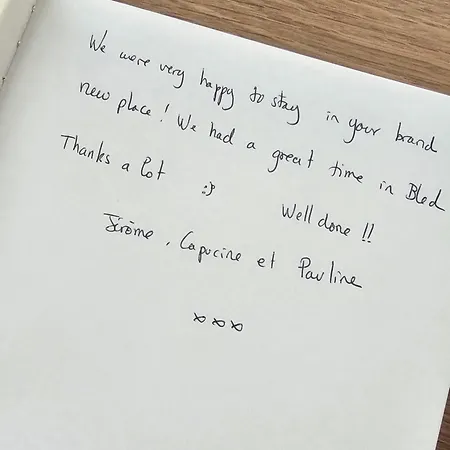 We were very happy to stay in your brand
new place! We had a great time in Bled
Thanks a lot :)
Well done !!
Jérôme, Capucine et Pauline
xxx